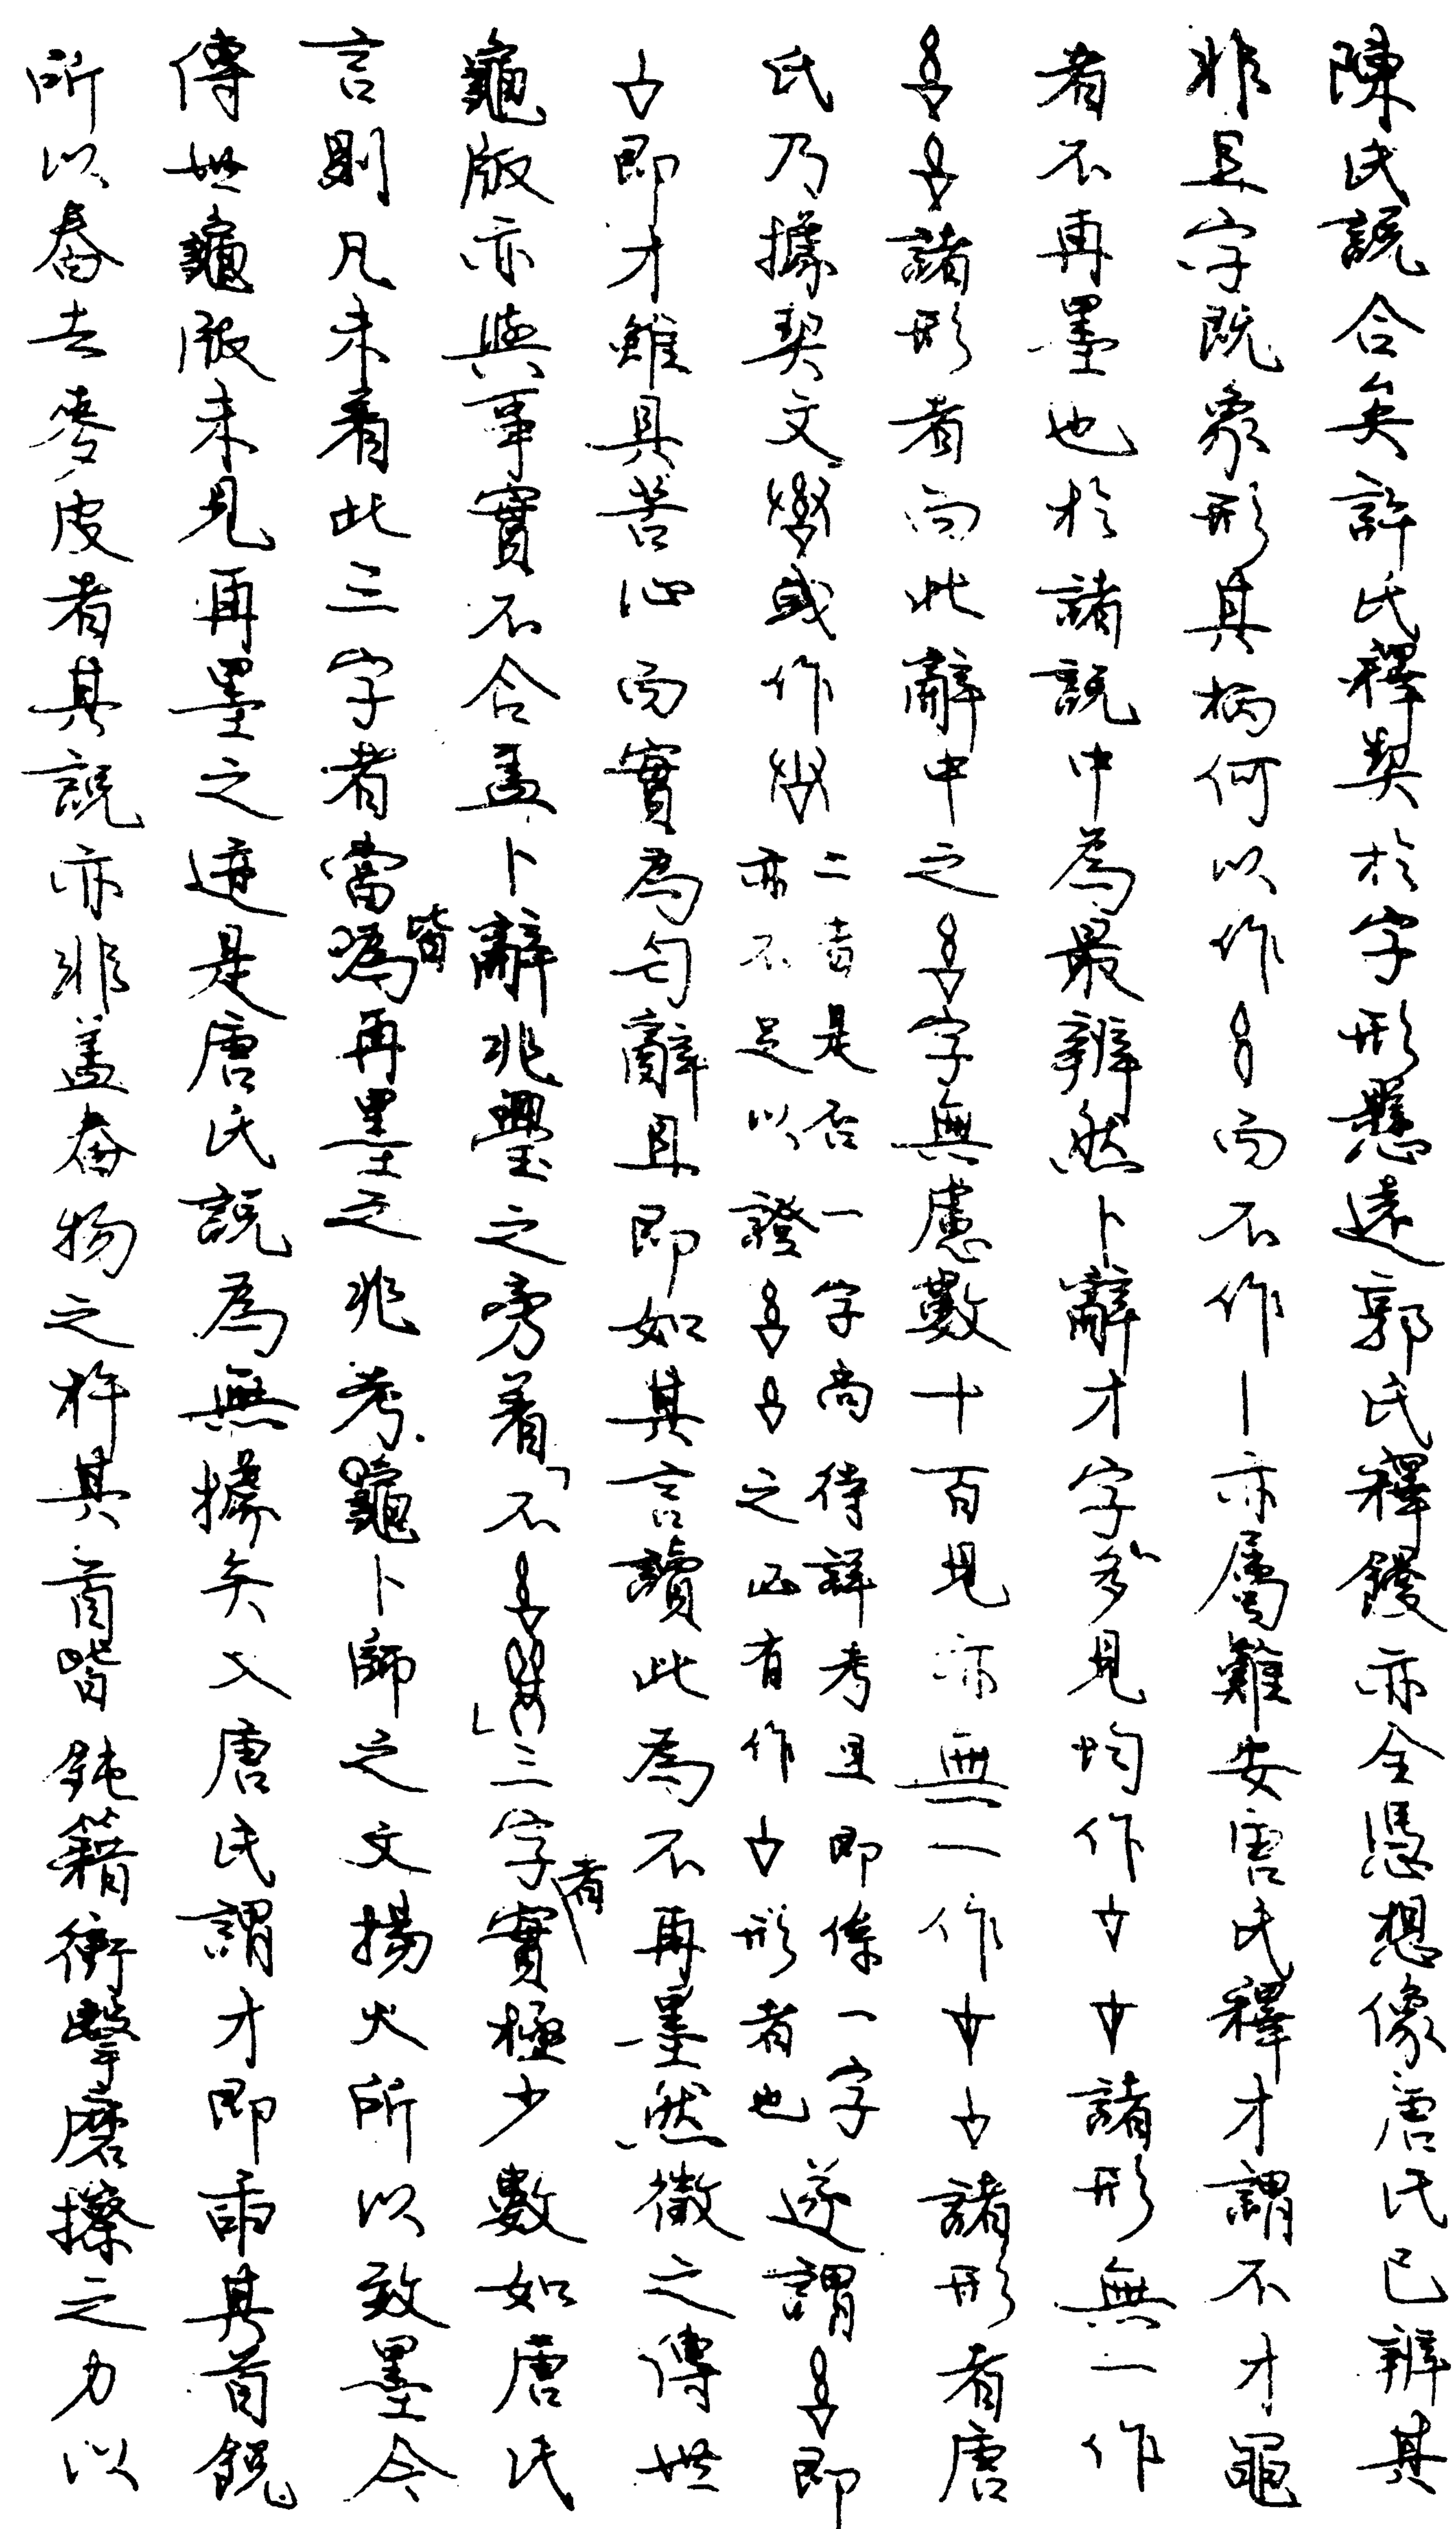 陳氏説合矣許氏釋契於字形懸遠郭氏釋鏝亦全憑想像唐氏已辨其
非且字既象形其柄何以作而不作丨亦屬難安唐氏釋才謂不才黽
者不再墨也於諸説中為最辨然卜辭才字多見均作諸形無一作
諸形者而此辭中之字無慮數十百見亦無一作諸形者唐
氏乃據契文或作二者是否一字尚待詳考且即係一字亦不足以證之必有作形者也遂謂即
即才雖具苦心而實為匄辭且即如其言讀此為不再墨然徵之傳世
龜版亦與事實不合蓋卜辭兆舋之旁着「不」三字者實極少數如唐氏
言則凡未着此三字者當皆為再墨之兆考龜卜師之文揚火所以致墨今
傳世龜版未見再墨之迹是唐氏説為無據矣又唐氏謂才即臿其首鋭
所以舂去麥皮者其説亦非蓋舂物之杵其首皆鈍籍衝擊磨擦之力以